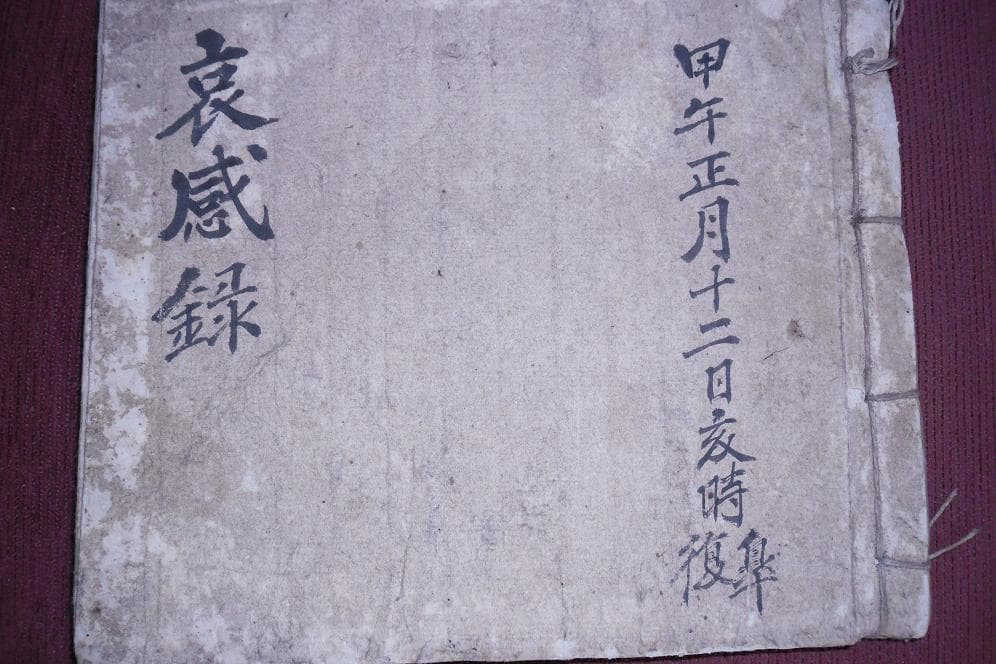 甲午正月十二日亥時皐復
哀感錄